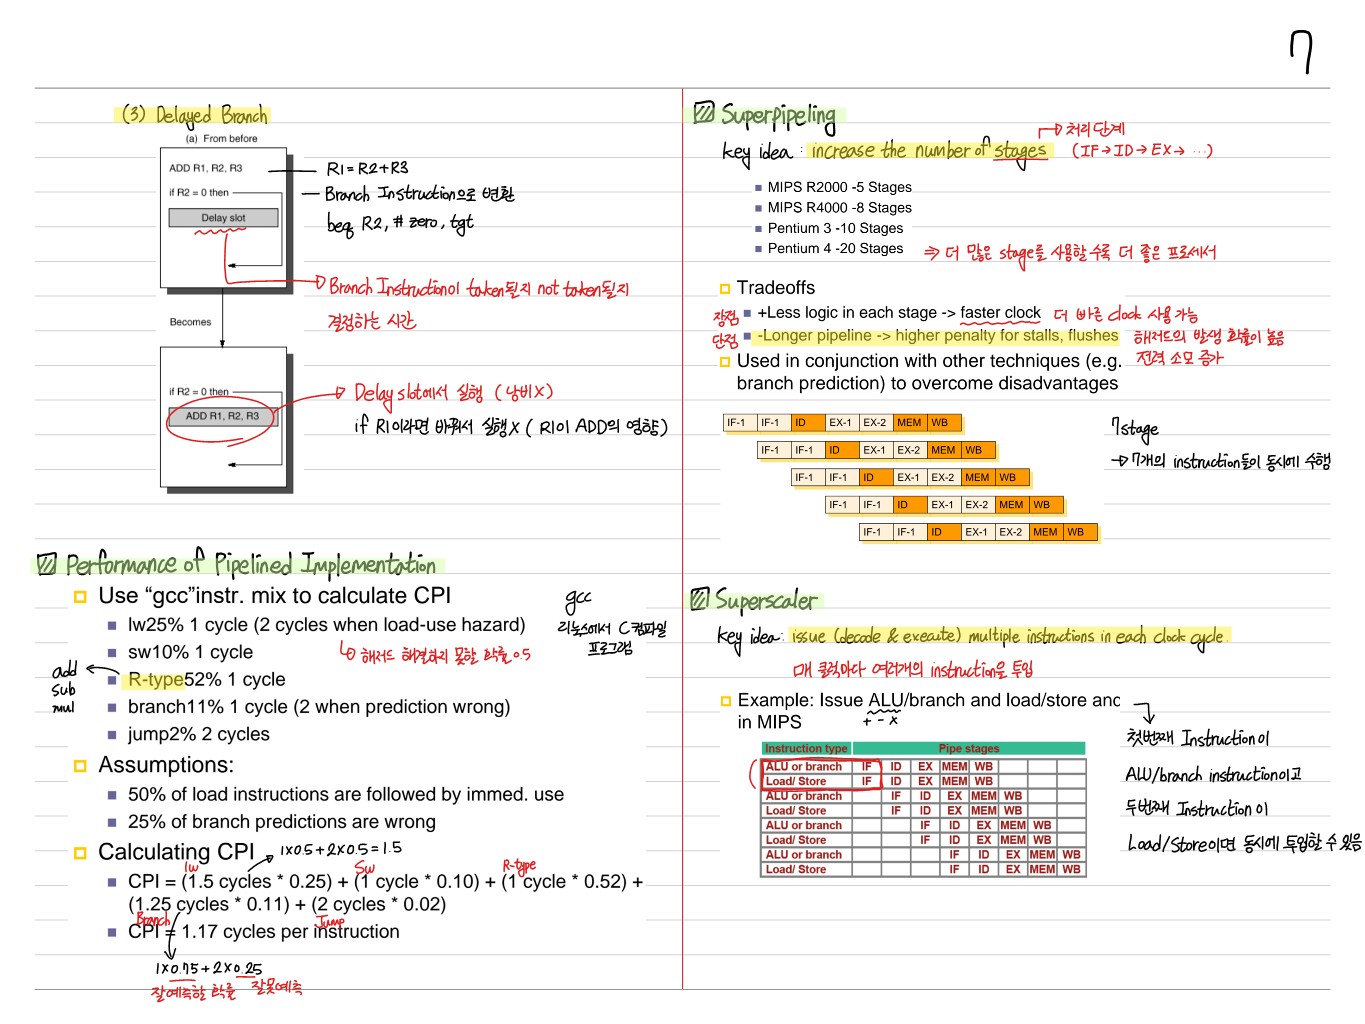 7
(3) Delayed Branch
(a) From before
ADD R1, R2, R3
R1=R2+R3
if R2 = 0 then
Branch Instruction으로 변환
Delay slot
beq R2, # zero, tgt
Branch Instruction이 taken될지 not taken될지
결정하는 시간
Becomes
if R2 = 0 then
ADD R1, R2, R3
Delay slot에서 실행 (낭비X)
if R1이라면 바꿔서 실행X (R1이 ADD의 영향)
Performance of Pipelined Implementation
Use “gcc”instr. mix to calculate CPI
gcc
리눅스에서 C컴파일
프로그램
lw25% 1 cycle (2 cycles when load-use hazard)
해저드 해결하지 못할 확률 0.5
sw10% 1 cycle
R-type52% 1 cycle
add
sub
mul
branch11% 1 cycle (2 when prediction wrong)
jump2% 2 cycles
Assumptions:
50% of load instructions are followed by immed. use
25% of branch predictions are wrong
Calculating CPI
1x0.5+2x0.5=1.5
lw
Sw
R-type
CPI = (1.5 cycles * 0.25) + (1 cycle * 0.10) + (1 cycle * 0.52) +
(1.25 cycles * 0.11) + (2 cycles * 0.02)
Branch
Jump
CPI = 1.17 cycles per instruction
1x0.75+2x0.25
잘예측할 확률 잘못예측
Superpipeling
key idea : increase the number of stages
처리단계
(IF→ID→EX→ ···)
MIPS R2000 -5 Stages
MIPS R4000 -8 Stages
Pentium 3 -10 Stages
Pentium 4 -20 Stages
⇒ 더 많은 stage를 사용할수록 더 좋은 프로세서
Tradeoffs
장점
+Less logic in each stage -> faster clock
더 빠른 clock 사용가능
단점
-Longer pipeline -> higher penalty for stalls, flushes
해저드의 발생 확률이 높음
전력 소모 증가
Used in conjunction with other techniques (e.g.
branch prediction) to overcome disadvantages
IF-1 IF-1 ID EX-1 EX-2 MEM WB
IF-1 IF-1 ID EX-1 EX-2 MEM WB
IF-1 IF-1 ID EX-1 EX-2 MEM WB
IF-1 IF-1 ID EX-1 EX-2 MEM WB
IF-1 IF-1 ID EX-1 EX-2 MEM WB
7stage
→ 7개의 instruction들이 동시에 수행
Superscaler
key idea: issue (decode & execute) multiple instuctions in each clock cycle.
매 클럭마다 여러개의 instruction을 투입
Example: Issue ALU/branch and load/store and
in MIPS
+ - x
Instruction type Pipe stages
ALU or branch IF ID EX MEM WB
Load/ Store IF ID EX MEM WB
ALU or branch IF ID EX MEM WB
Load/ Store IF ID EX MEM WB
ALU or branch IF ID EX MEM WB
Load/ Store IF ID EX MEM WB
ALU or branch IF ID EX MEM WB
Load/ Store IF ID EX MEM WB
첫번째 Instruction이
ALU/branch instruction이고
두번째 Instruction이
Load/Store이면 동시에 투입할 수 있음